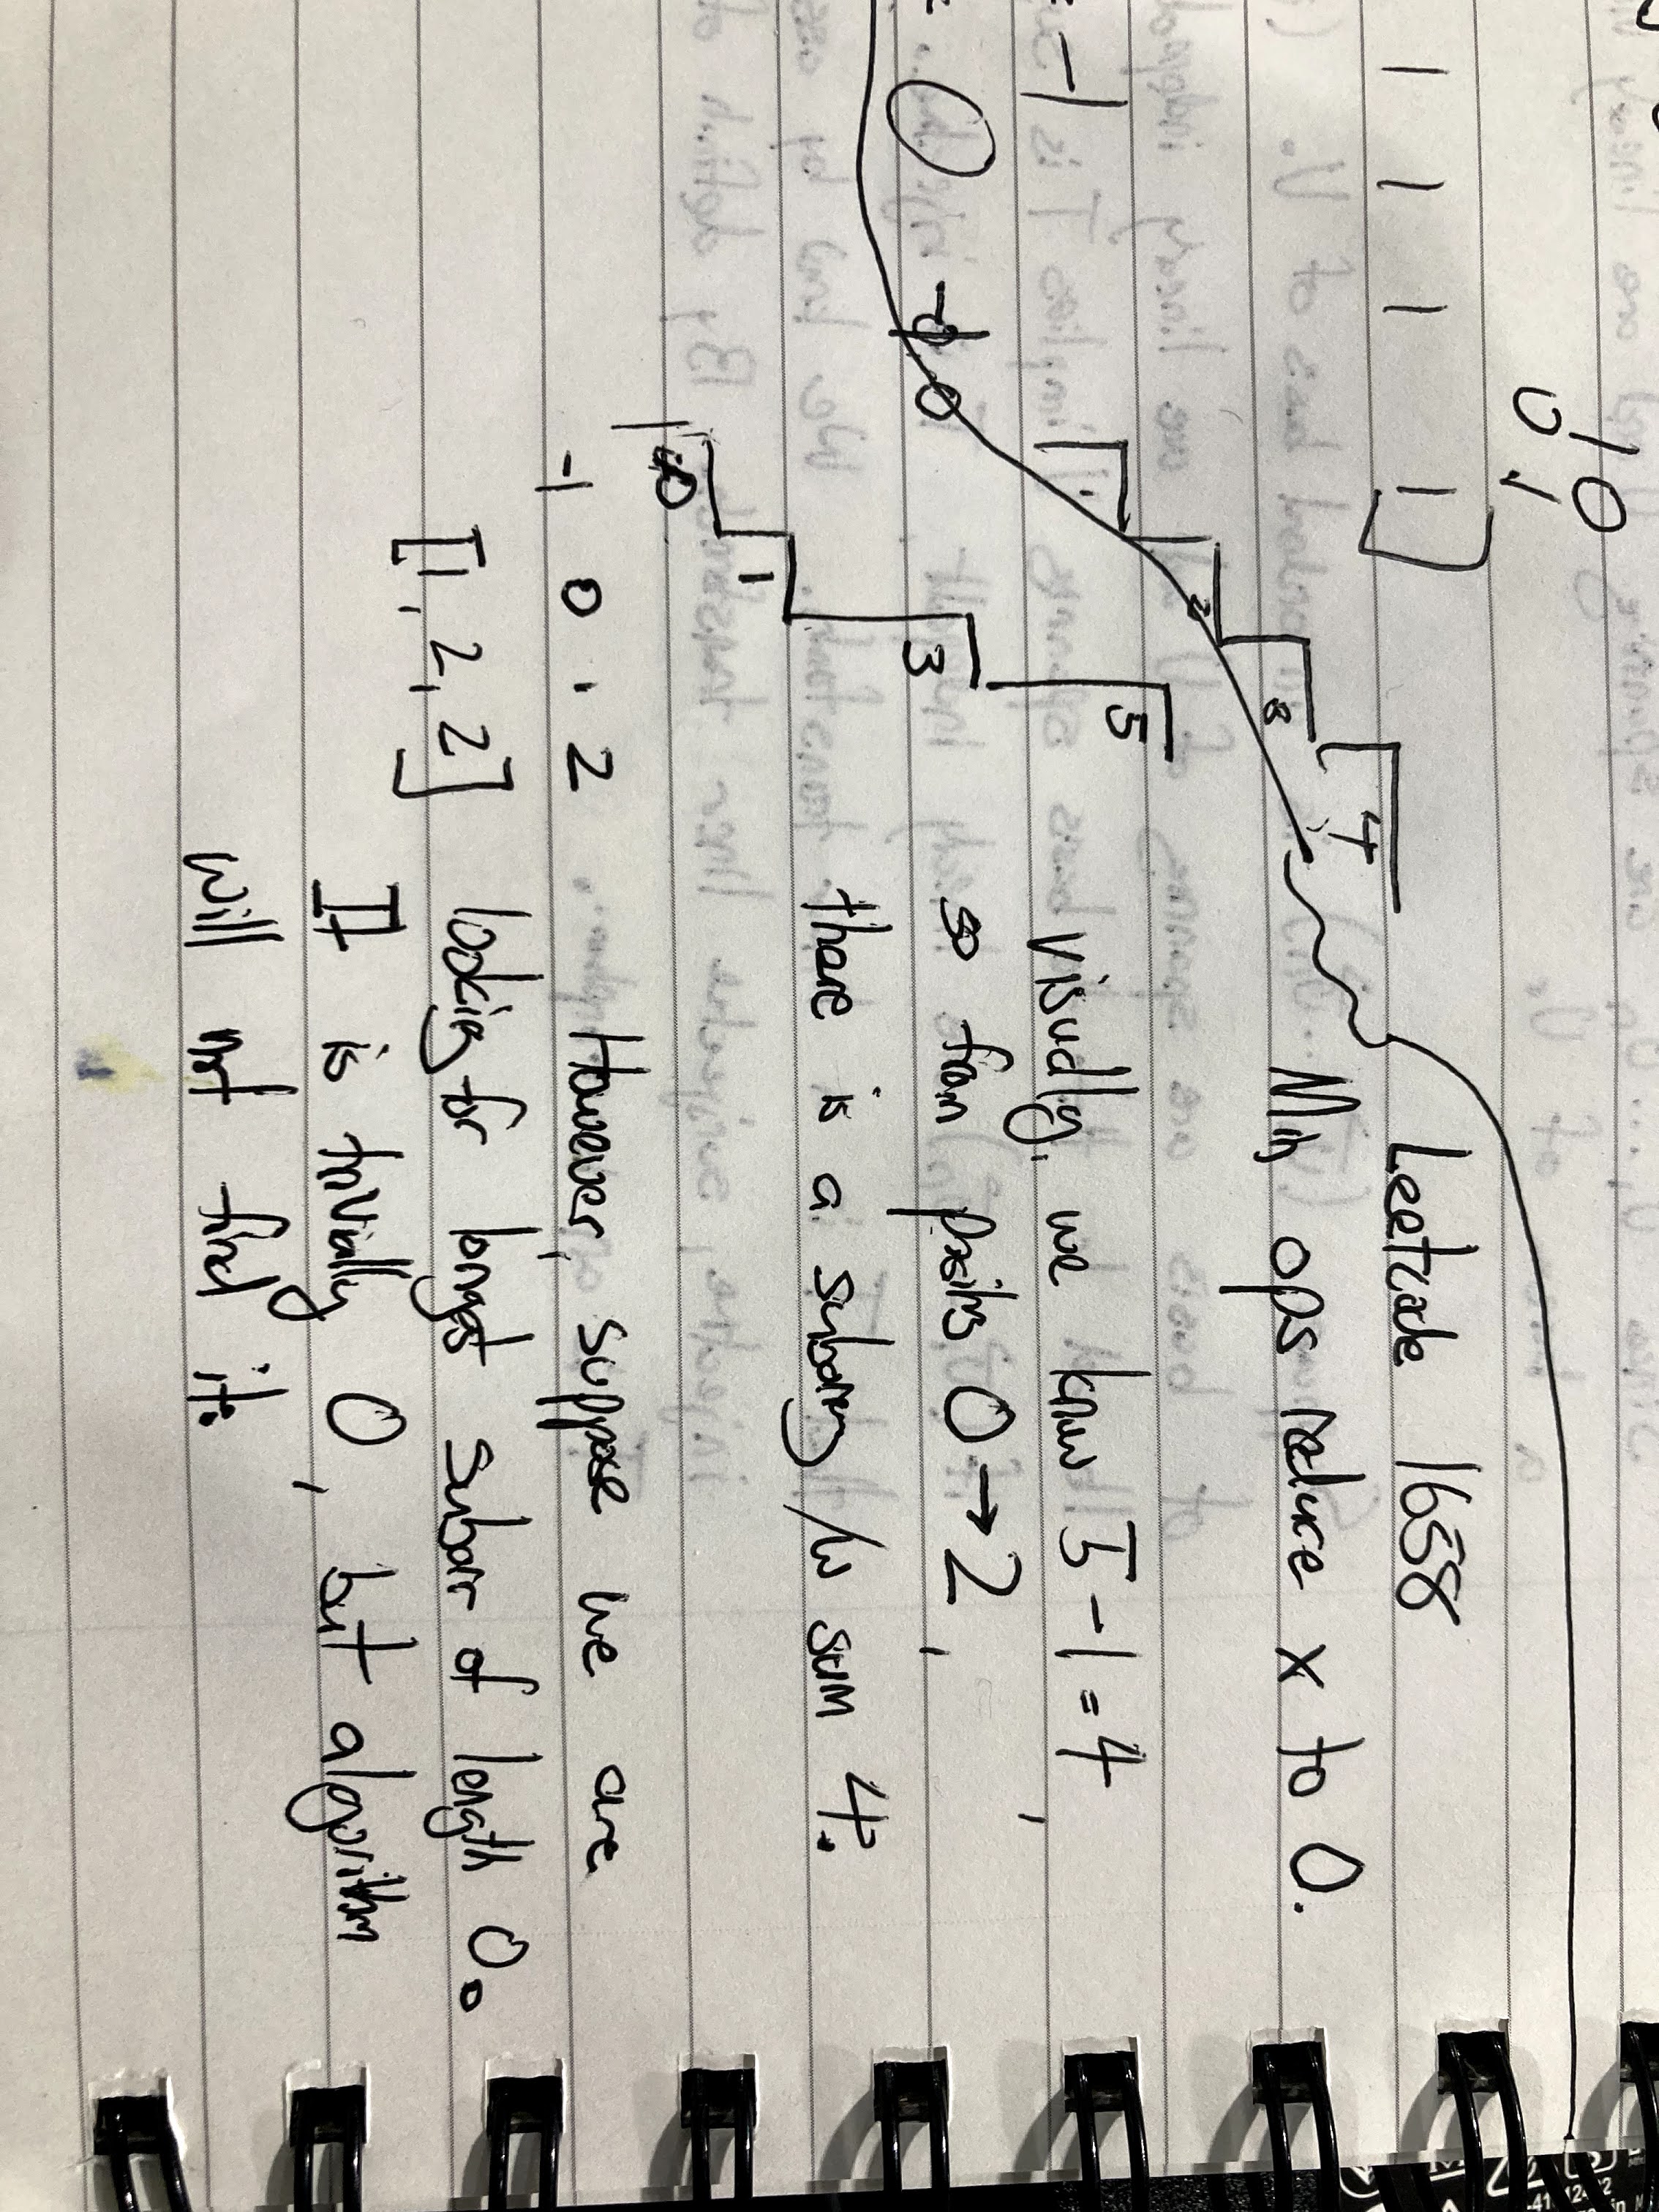 10
0 1
1 1 1 1]
Leetcode 1658
4
Min ops reduce x to 0.
3
2
5
1
visually, we know 5-1=4,
-1
so from position 0→2,
0 -1 0
3
there is a subarray /w sum 4.
1
0
-1 0 1 2
However, suppose we are
[1, 2, 2]
looking for longest subarr of length 0.
It is trivially 0, but algorithm
will not find it.